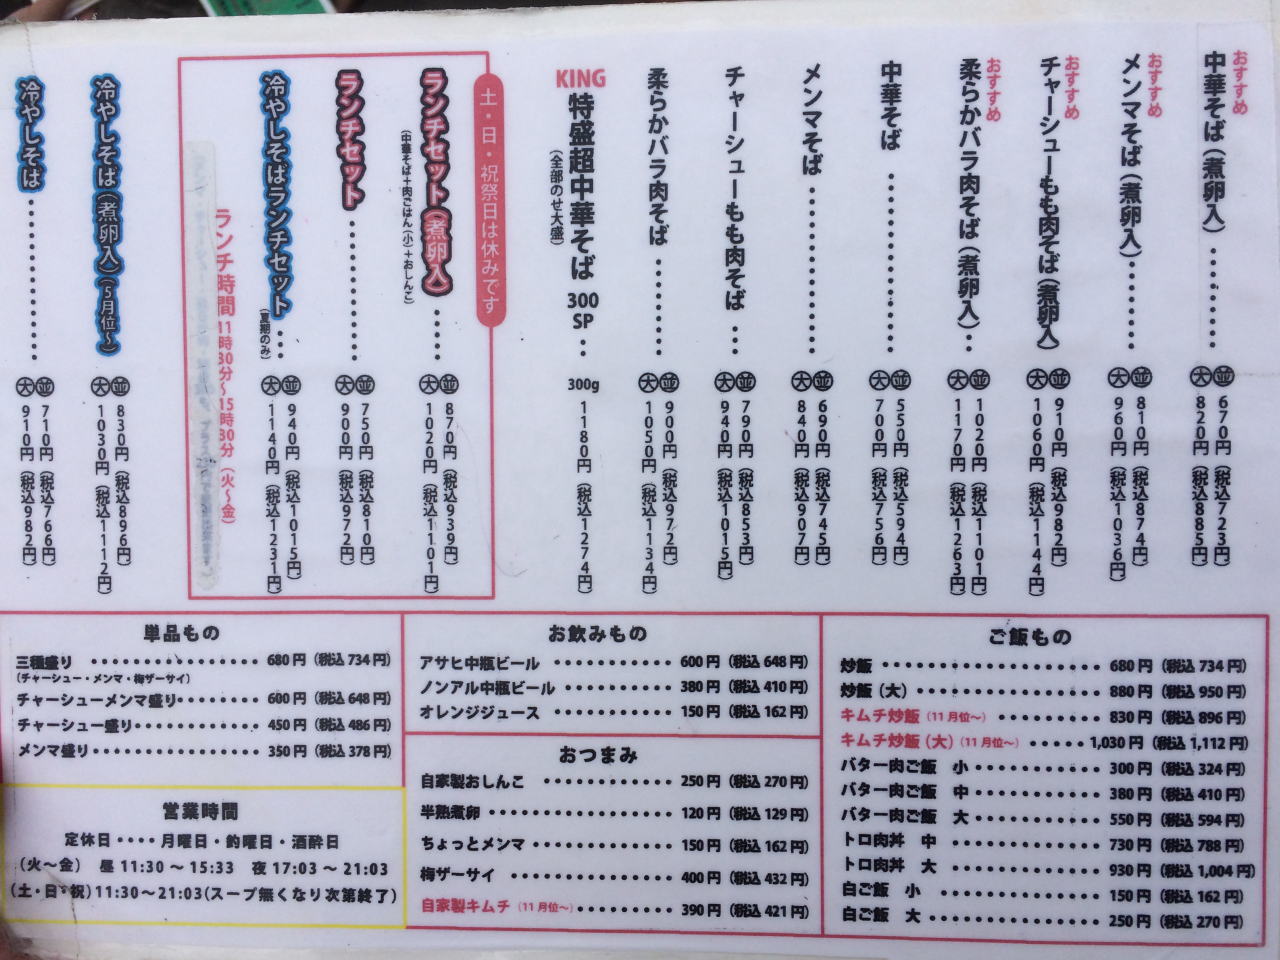 おすすめ
中華そば(煮卵入) 並 670円(税込723円) 大 820円(税込885円)
おすすめ
メンマそば(煮卵入) 並 810円(税込874円) 大 960円(税込1036円)
おすすめ
チャーシューもも肉そば(煮卵入) 並 910円(税込982円) 大 1060円(税込1144円)
おすすめ
柔らかバラ肉そば(煮卵入) 並 1020円(税込1101円) 大 1170円(税込1263円)
中華そば 並 550円(税込594円) 大 700円(税込756円)
メンマそば 並 690円(税込745円) 大 840円(税込907円)
チャーシューもも肉そば 並 790円(税込853円) 大 940円(税込1015円)
柔らかバラ肉そば 並 900円(税込972円) 大 1050円(税込1134円)
KING
特盛超中華そば 300SP 300g 1180円(税込1274円)
(全部のせ大盛)
土・日・祝祭日は休みです
ランチセット(煮卵入) 並 870円(税込939円) 大 1020円(税込1101円)
(中華そば+肉ごはん(小)+おしんこ)
ランチセット 並 750円(税込810円) 大 900円(税込972円)
冷やしそばランチセット(夏期のみ) 並 940円(税込1015円) 大 1140円(税込1231円)
ランチ時間 11時30分〜15時30分(火〜金)
冷やしそば(煮卵入)(5月位〜) 並 830円(税込896円) 大 1030円(税込1112円)
冷やしそば 並 710円(税込766円) 大 910円(税込982円)
単品もの
三種盛り 680円(税込734円)
(チャーシュー・メンマ・梅ザーサイ)
チャーシューメンマ盛り 600円(税込648円)
チャーシュー盛り 450円(税込486円)
メンマ盛り 350円(税込378円)
営業時間
定休日・・・・月曜日・釣曜日・酒酔日
(火〜金) 昼 11:30〜15:33 夜 17:03〜21:03
(土・日・祝)11:30〜21:03(スープ無くなり次第終了)
お飲みもの
アサヒ中瓶ビール 600円(税込648円)
ノンアル中瓶ビール 380円(税込410円)
オレンジジュース 150円(税込162円)
おつまみ
自家製おしんこ 250円(税込270円)
半熟煮卵 120円(税込129円)
ちょっとメンマ 150円(税込162円)
梅ザーサイ 400円(税込432円)
自家製キムチ(11月位〜) 390円(税込421円)
ご飯もの
炒飯 680円(税込734円)
炒飯(大) 880円(税込950円)
キムチ炒飯(11月位〜) 830円(税込896円)
キムチ炒飯(大)(11月位〜) 1,030円(税込1,112円)
バター肉ご飯 小 300円(税込324円)
バター肉ご飯 中 380円(税込410円)
バター肉ご飯 大 550円(税込594円)
トロ肉丼 中 730円(税込788円)
トロ肉丼 大 930円(税込1,004円)
白ご飯 小 150円(税込162円)
白ご飯 大 250円(税込270円)